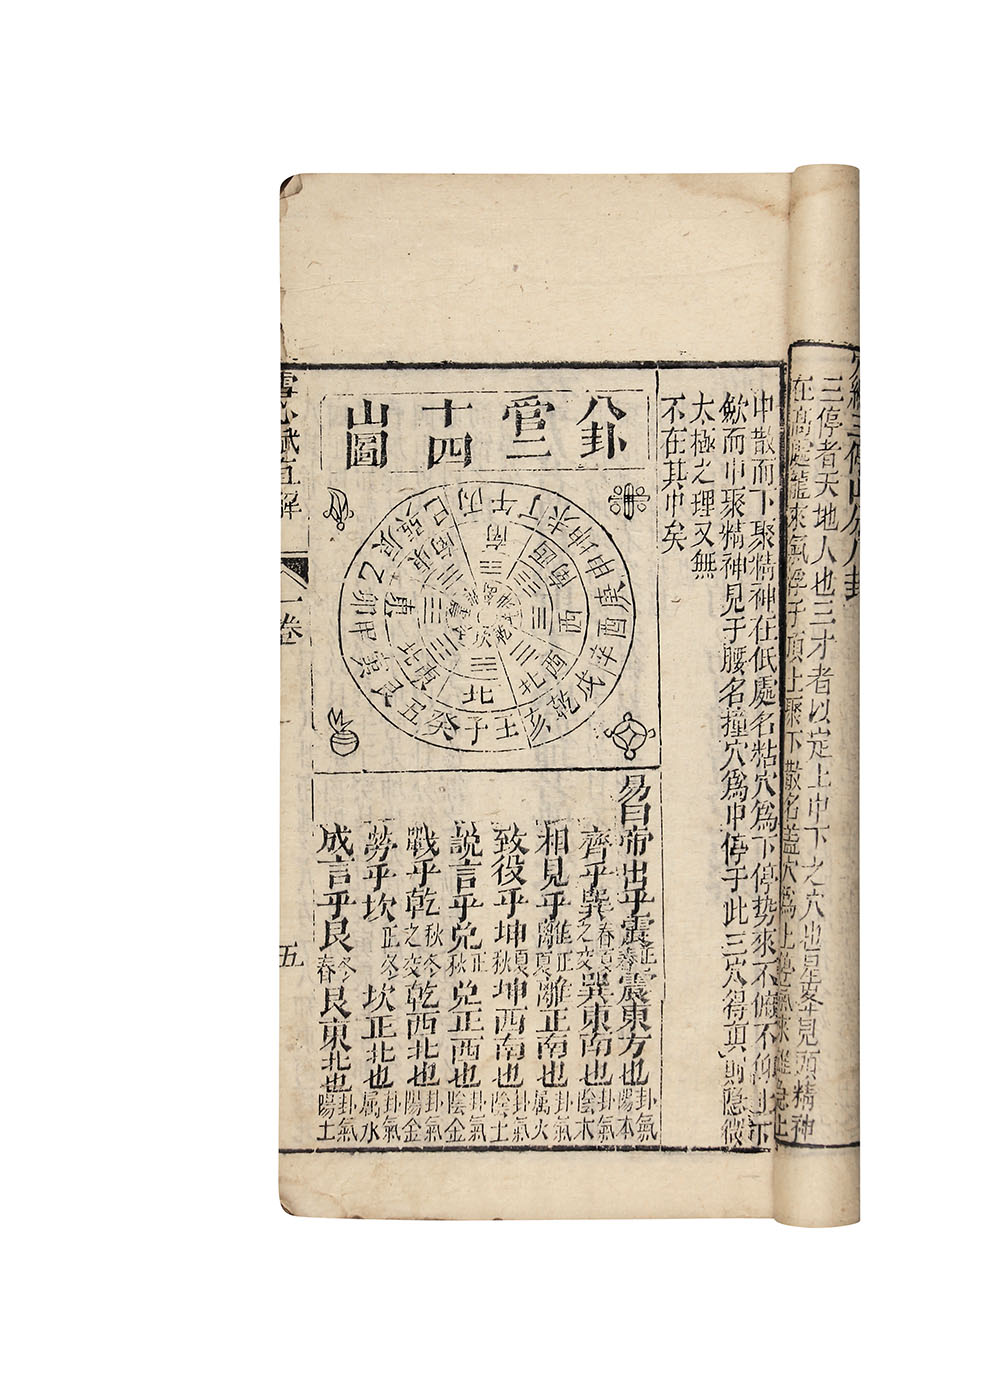 三停者天地人也三才者以定上中下之穴也星峯見頭精神
在高處龍來氣浮于頂上聚下散名蓋穴為上
中散而下聚精神在低處名粘穴為下停势來不俯不仰上下
歛而中聚精神見于腰名撞穴為中停于此三穴得真則隱微
太極之理又無
不在其中矣
八卦
管二
十四
山圖
丙午丁未坤申庚酉辛戌乾亥壬子癸丑艮寅甲卯乙辰巽巳
南
西南
西
西北
北
東北
東
東南
易曰帝出乎震正春震東方也卦氣陽木
齊乎巽春夏之交巽東南也卦氣陰木
相見乎離正夏離正南也卦氣属火
致役乎坤夏秋坤西南也卦氣陰土
説言乎兑正秋兑正西也卦氣陰金
戰乎乾秋冬之交乾西北也卦氣陽金
勞乎坎正冬坎正北也卦氣属水
成言乎艮冬春艮東北也卦氣陽土
雪心賦直解
一卷
五